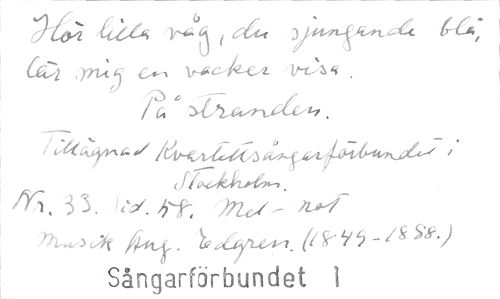 Hör lilla våg, du sjungande blå,
lär mig en vacker visa.
På stranden.
Tillägnad Kvartettsångarförbundet i
Stockholm.
Nr. 33. Sid. 58. Mel-not
Musik Aug. Edgren. (1849-1888.)
Sångarförbundet 1